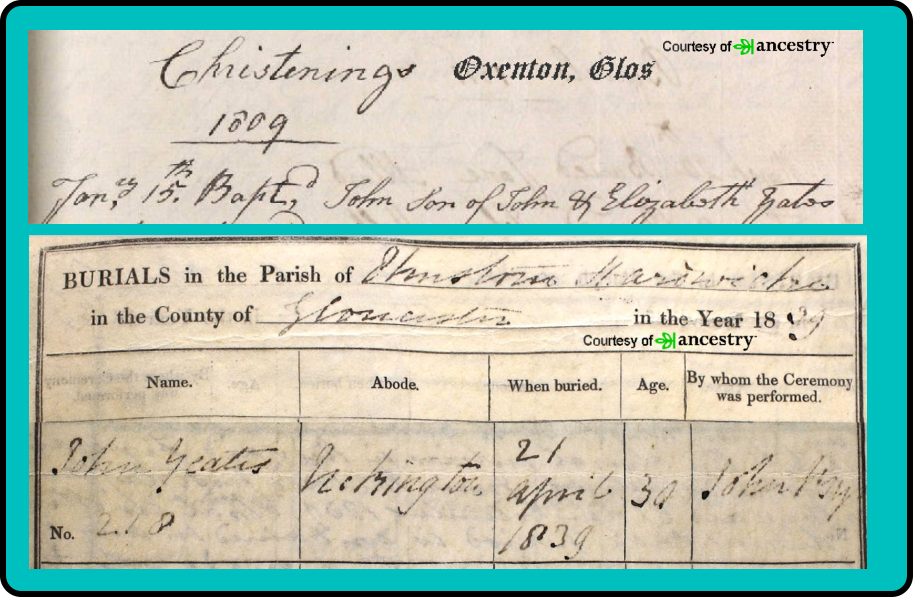 Courtesy of ancestry
Christenings Oxenton, Glos
1809
Jan.ry 15.th Bapt.d John Son of John & Elizabeth Yates
BURIALS in the Parish of Elmstone Hardwicke
in the County of Gloucester in the Year 1839
Courtesy of ancestry
Name. Abode. When buried. Age. By whom the Ceremony was performed.
John Yeates Uckington 21 april 1839 30 John
No. 218